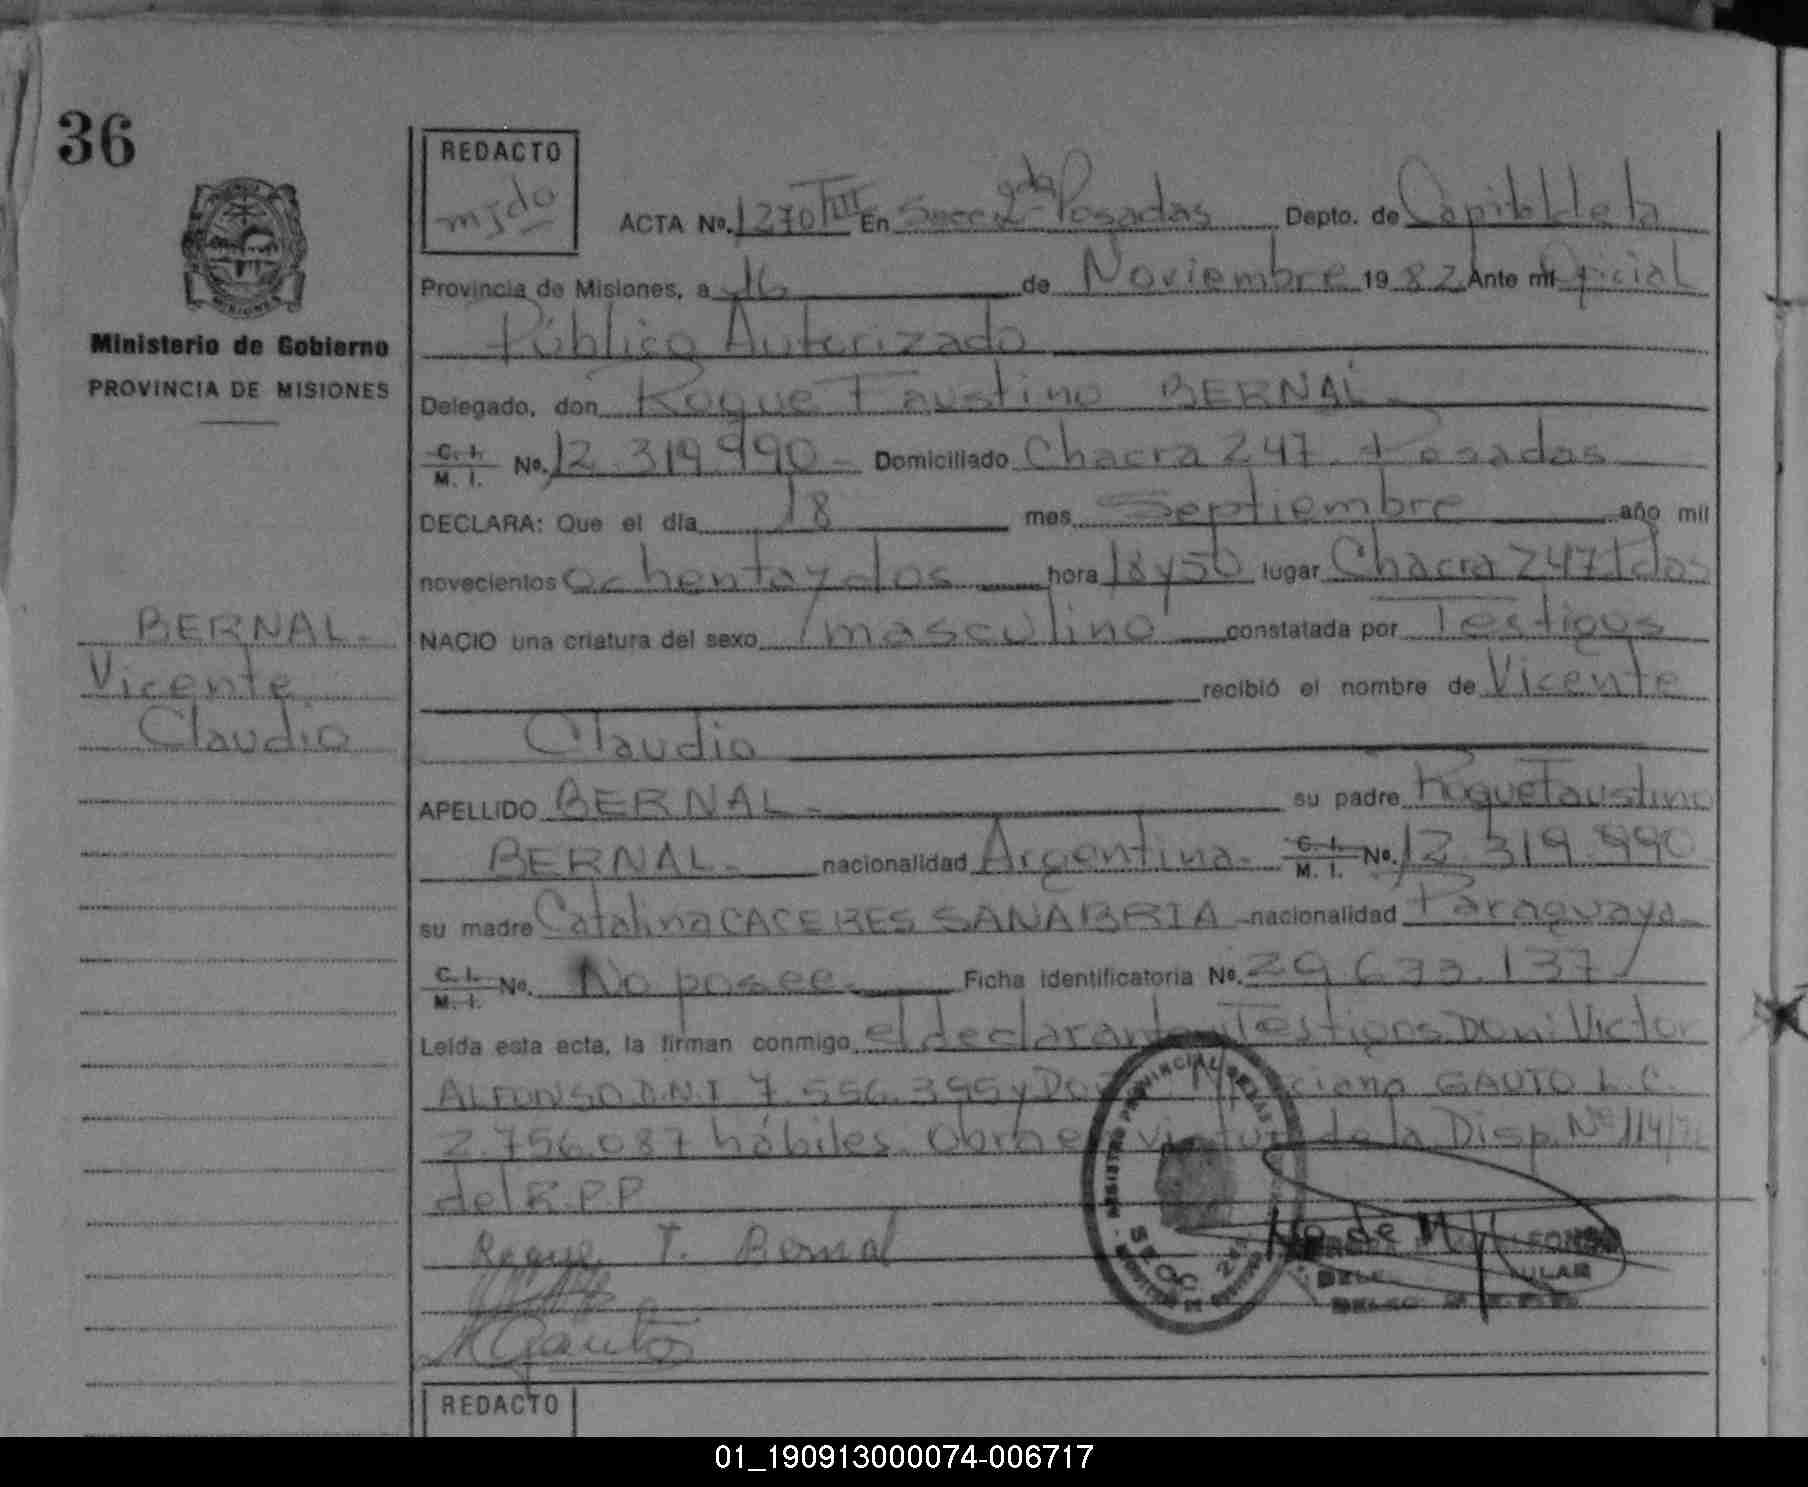 36
REDACTO
mjdo
ACTA Nº. 1270 TIII En Secc 2da Posadas Depto. de Capital de la
Provincia de Misiones, a 16 de Noviembre 1982 Ante mí Oficial
Ministerio de Gobierno
PROVINCIA DE MISIONES
Público Autorizado
Delegado, don Roque Faustino BERNAL
C. I. M. I. Nº. 12.319.990 - Domiciliado Chacra 247. Posadas
DECLARA: Que el día 18 mes Septiembre año mil
novecientos ochenta y dos hora 18 y 50 lugar Chacra 247 Pdas
NACIO una criatura del sexo masculino constatada por Testigos
recibió el nombre de Vicente
Claudio
BERNAL -
Vicente
Claudio
APELLIDO BERNAL - su padre Roque Faustino
BERNAL - nacionalidad Argentina - C. I. M. I. Nº. 12.319.990
su madre Catalina CACERES SANABRIA - nacionalidad Paraguaya
C. I. M. I. Nº. No posee - Ficha identificatoria Nº. 29.633.137
Leída esta acta, la firman conmigo el declarante y Testigos Don: Victor
ALFONSO D.N.I 7.556.395 y Doña GAUTO L.C.
2.756.087 hábiles. Obrne virtud de la Disp. Nº 114/
del R.P.P
Roque F. Bernal
M Gauto
REGISTRO PROVINCIAL DE LAS
SECC 2da
REDACTO
01_190913000074-006717